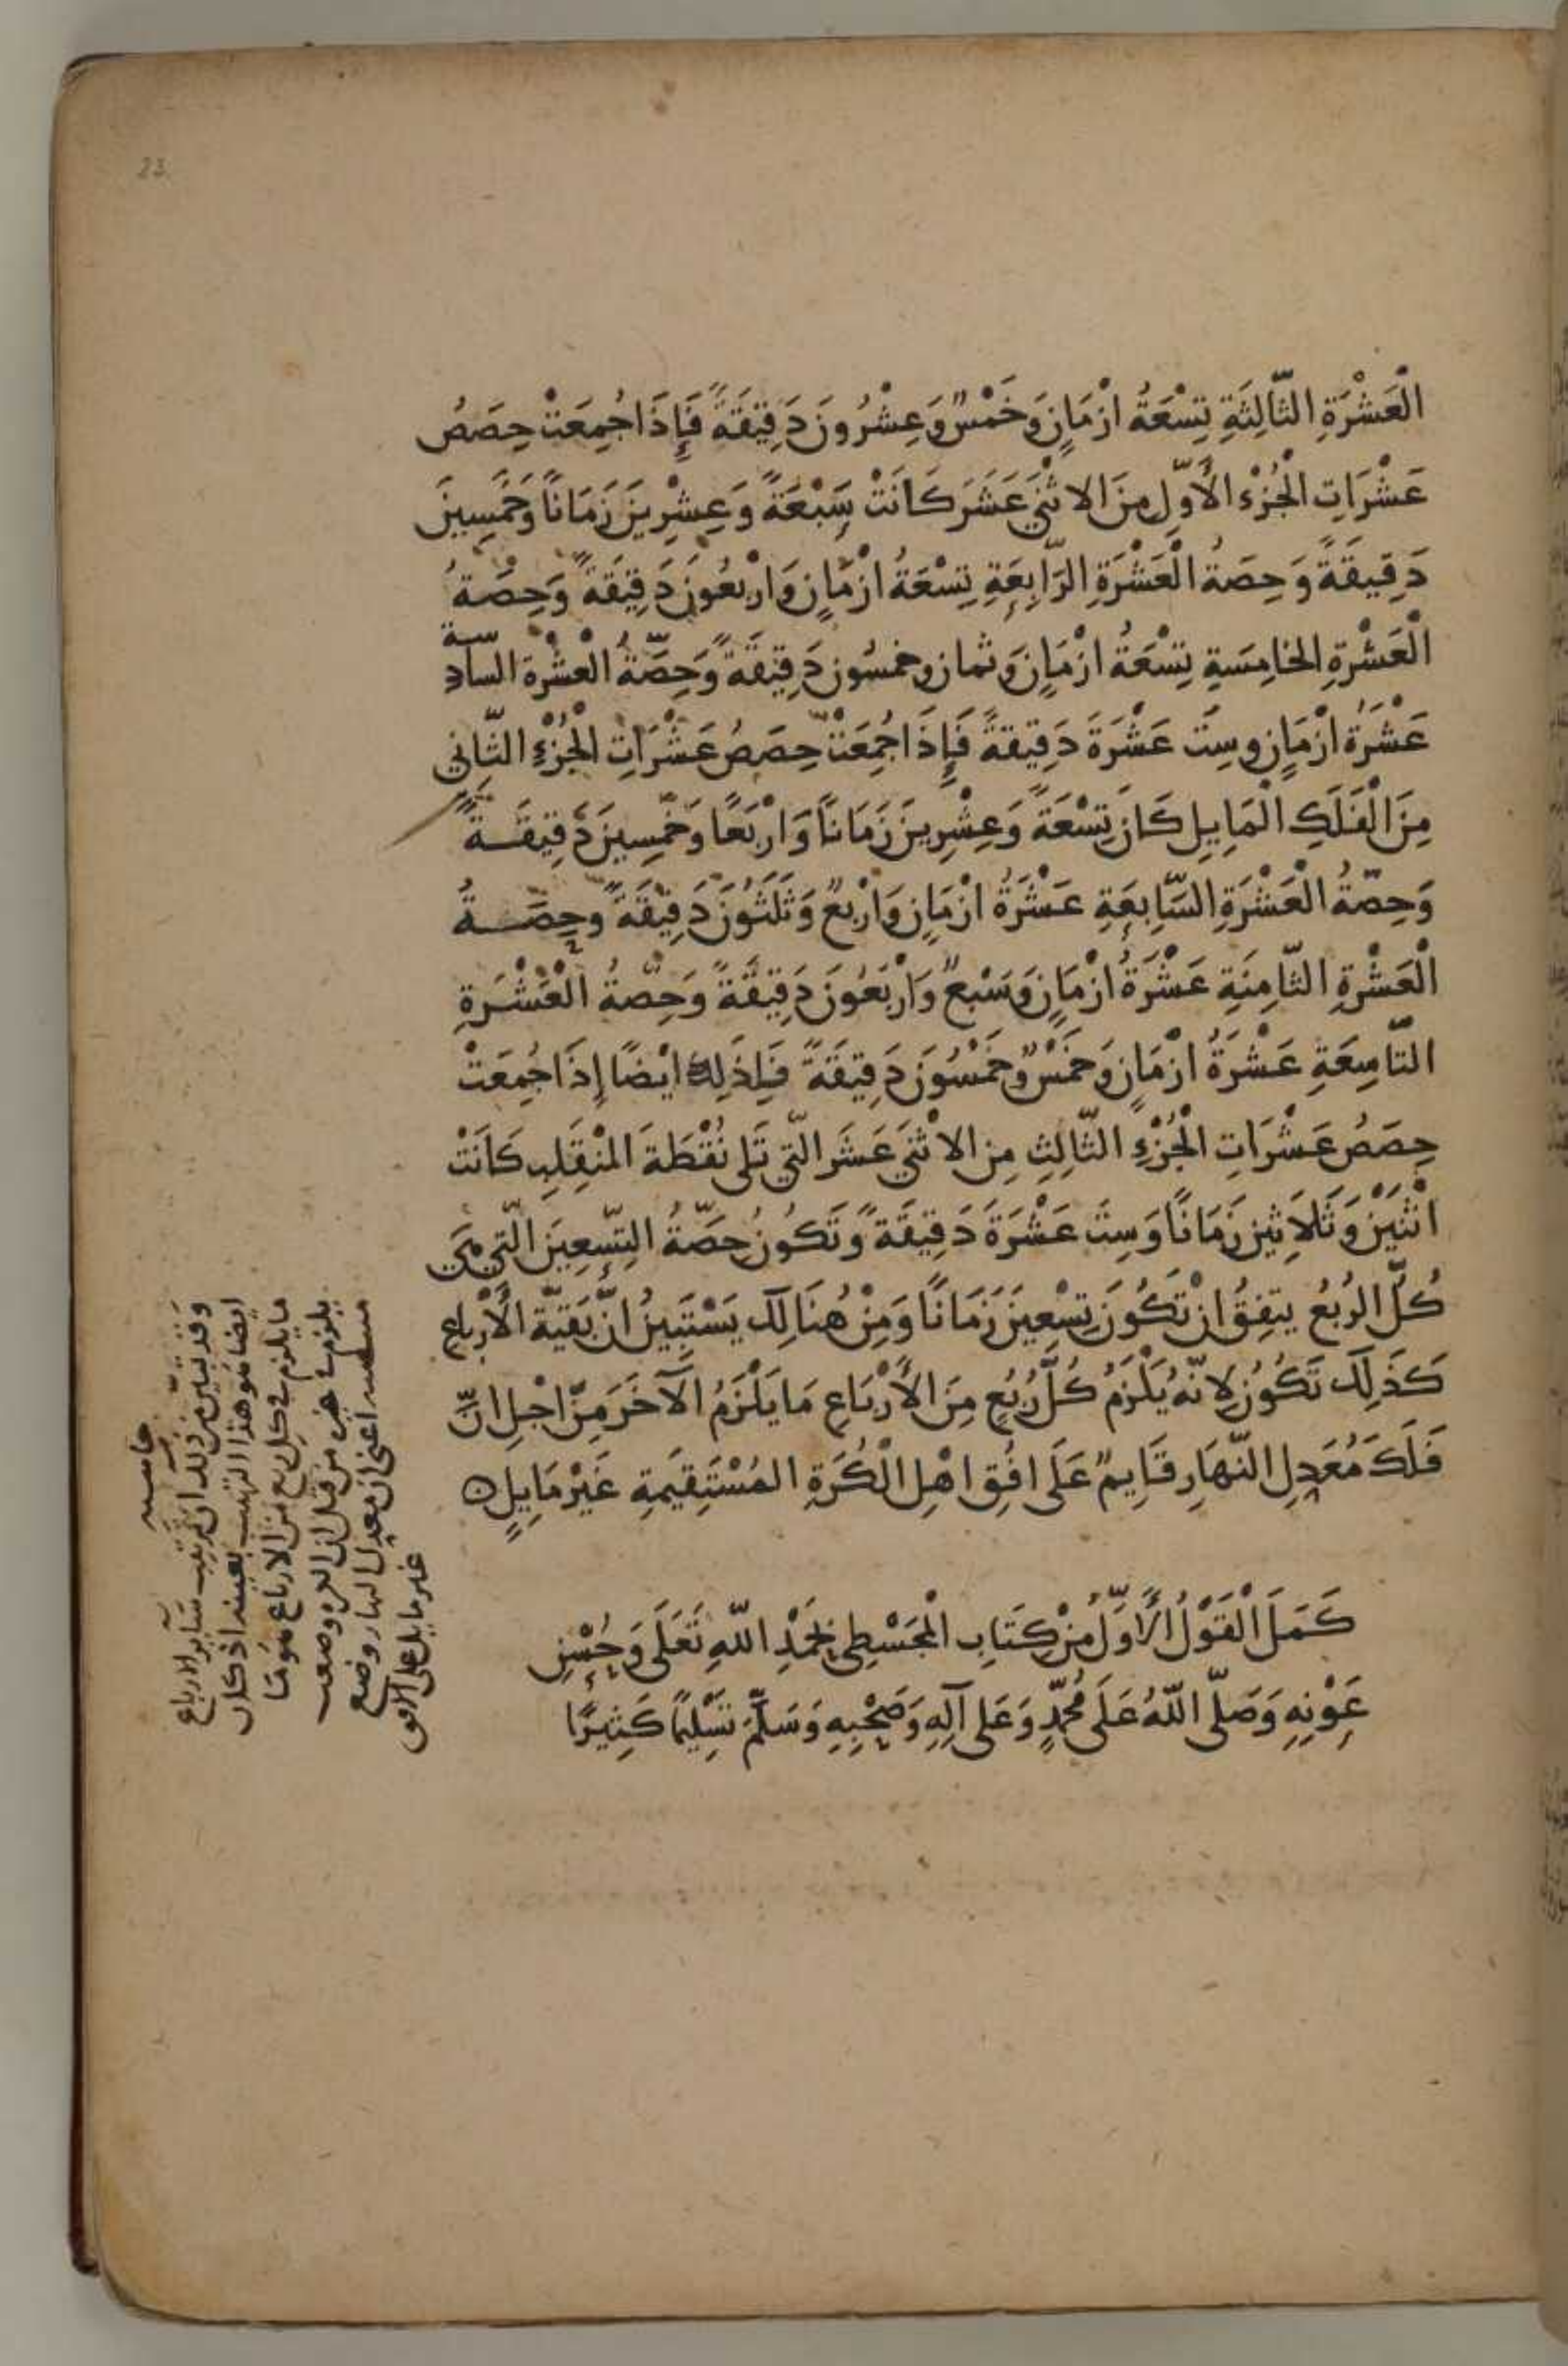 23
الْعَشْرَةِ الثَّالِثَةِ تِسْعَةُ ازْمَانٍ وَخَمْسٌ وَعِشْرُونَ دَقِيقَةً فَإِذَا جُمِعَتْ حِصَصُ
عَشْرَاتِ الْجُزْء الْأَوّلِ مِنَ الاثْنَيْ عَشَرَ كَانَتْ سَبْعَةً وَعِشْرِينَ زَمَانًا وَخَمْسِينَ
دَقِيقَةً وَحِصَةُ الْعَشْرَةِ الرَّابِعَةِ تِسْعَةُ ازْمَانٍ وَارْبَعُونَ دَقِيقَةً وَحِصَةُ
الْعَشْرَةِ الخامِسَةِ تِسْعَةُ ازْمَانٍ وَثمان وخمسُون دَقِيقَةً وَحِصَّةُ الْعَشْرة السّادِسة
عَشَرَةُ ازْمَانٍ وسِتَ عَشْرَةَ دَقِيقةً فَإِذَا جُمِعَتْ حِصَصُ عَشْرَاتِ الْجُزْءِ الثَّانِي
مِنَ الْفَلَكِ الْمَايِلِ كَانَ تِسْعَةً وَعِشْرِينَ زَمَانًا وَارْبَعًا وَخَمْسِينَ دَقِيقَةً
وَحِصّةُ الْعَشْرَةِ السَّابِعَةِ عَشْرَةُ ازْمَانٍ وَارْبعٌ وَثَلَثُونَ دَقِيقَةً وحِصَّةُ
الْعَشْرَةِ الثّامِنَةِ عَشْرَةُ ازْمَانٍ وَسَبْعٌ وَارْبَعُونَ دَقِيقَةً وَحِصّةُ الْعَشْرَةِ
التّاسِعَةِ عَشْرَةُ ازْمَانٍ وَخَمْسٌ وَخَمْسُونَ دَقِيقَةً فَلِذَلِكَ ايْضًا إِذَا جُمِعَتْ
حِصَصُ عَشْرَاتِ الْجُزْءِ الثّالِثِ مِن الاثْنَيْ عَشَر الّتِي تَلى نُقْطَةَ المنْقَلِبِ كَانَتْ
اثْنَيْنِ وَثَلاَثِين زَمَانًا وَسِتَ عَشْرَةَ دَقِيقَةً وَتَكُونُ حِصَّةُ التِّسعِينَ الّتِي هِيَ
كُلُّ الرُبُعُ يتفِقُ انْ تَكُونَ تِسْعِينَ زَمَانًا وَمِنْ هُنَالِكَ يَسْتَبِينُ انَّ بَقِيّةَ الْأَرْباعِ
كَذَلِكَ تَكُونُ لانّهُ يَلْزَمُ كُلَّ رُبُعٍ مِنَ الأَرْبَاعِ مَا يَلْزَمُ الآخَرَ مِنْ اجْلِ انّ
فَلَكَ مُعَدِلِ النّهَارِ قَايِمٌ عَلَى افُقِ اهْلِ الْكُرَةِ المُسْتَقِيمَةِ غَيْرُ مَايِلٍ ٥
كَمَلَ الْقَوْلُ الْأَوَّلُ مِنْ كِتَابِ الْمَجَسْطِي بِحَمْدِ اللّهِ تَعَلَى وَحُسْنِ
عَوْنِهِ وَصَلّى اللّهُ عَلَى مُحَمّدٍ وَعَلى آلِهِ وَصَحْبِهِ وَسَلَّمَ تَسْلِيمًا كَثِيرًا
حاشية
وَقد تبيّن من ذلك ان ترتيب سَاير الارباع
ايضا هو هذا الترتيب بعينه اذ كان
ما يلزم في كل ربع من الارباع هو ما
يلزم في غيره من قبل ان الكره وضعت
مستقيمه اعنى ان معدل النهار وضع
غير مايل على الافق